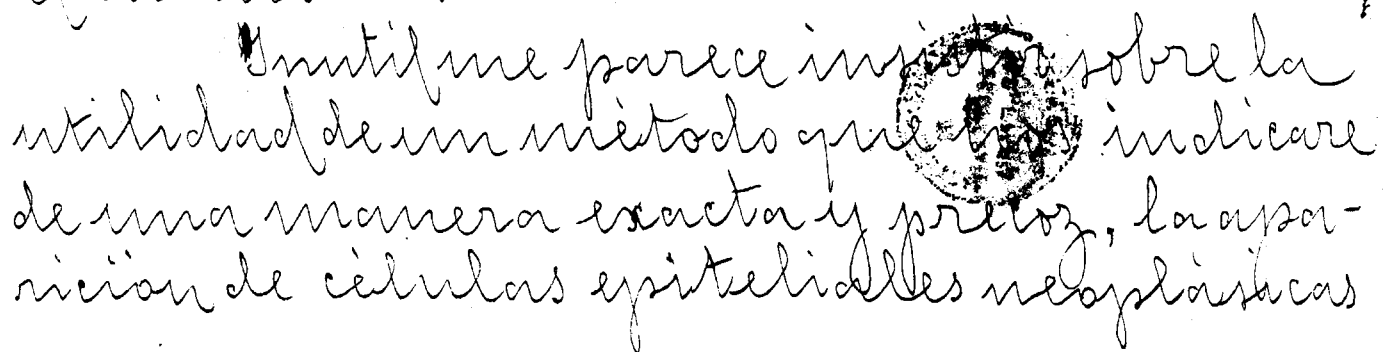 Inutil me parece insistir sobre la
utilidad de un método que nos indicare
de una manera exacta y precoz, la apa-
rición de células epiteliales neoplásicas